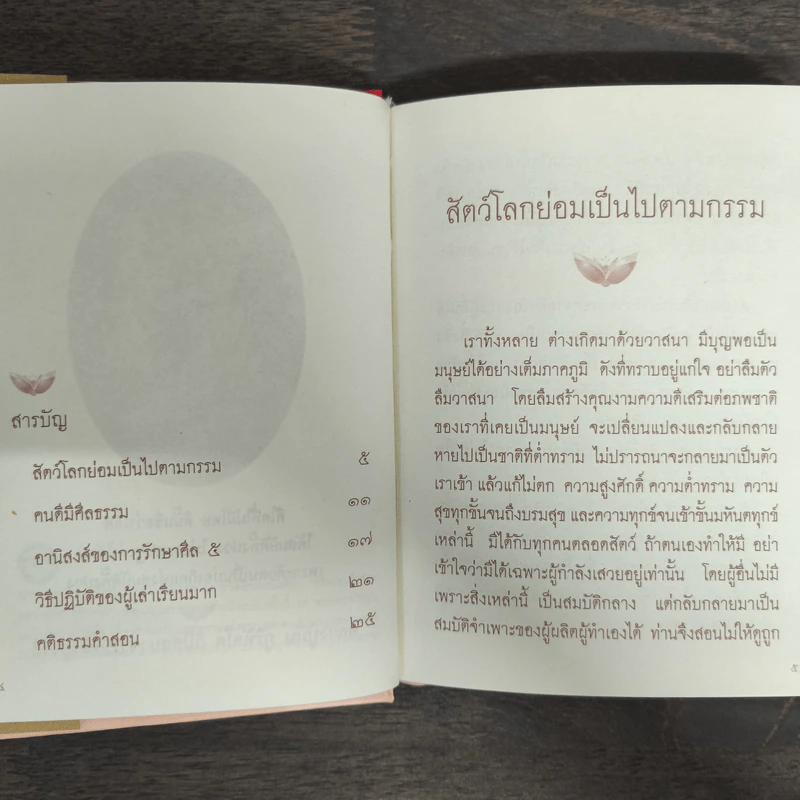 สารบัญ
สัตว์โลกย่อมเป็นไปตามกรรม ๕
คนดีมีศีลธรรม ๑๑
อานิสงส์ของการรักษาศีล ๕ ๑๗
วิธีปฏิบัติของผู้เล่าเรียนมาก ๒๑
คติธรรมคำสอน ๒๕
๔
สัตว์โลกย่อมเป็นไปตามกรรม
เราทั้งหลาย ต่างเกิดมาด้วยวาสนา มีบุญพอเป็น
มนุษย์ได้อย่างเต็มภาคภูมิ ดังที่ทราบอยู่แก่ใจ อย่าลืมตัว
ลืมวาสนา โดยลืมสร้างคุณงามความดีเสริมต่อภพชาติ
ของเราที่เคยเป็นมนุษย์ จะเปลี่ยนแปลงและกลับกลาย
หายไปเป็นชาติที่ต่ำทราม ไม่ปรารถนาจะกลายมาเป็นตัว
เราเข้า แล้วแก้ไม่ตก ความสูงศักดิ์ ความต่ำทราม ความ
สุขทุกขั้นจนถึงบรมสุข และความทุกข์จนเข้าขั้นมหันตทุกข์
เหล่านี้ มีได้กับทุกคนตลอดสัตว์ ถ้าตนเองทำให้มี อย่า
เข้าใจว่ามีได้เฉพาะผู้กำลังเสวยอยู่เท่านั้น โดยผู้อื่นไม่มี
เพราะสิ่งเหล่านี้ เป็นสมบัติกลาง แต่กลับกลายมาเป็น
สมบัติจำเพาะของผู้ผลิตผู้ทำเองได้ ท่านจึงสอนไม่ให้ดูถูก
๕